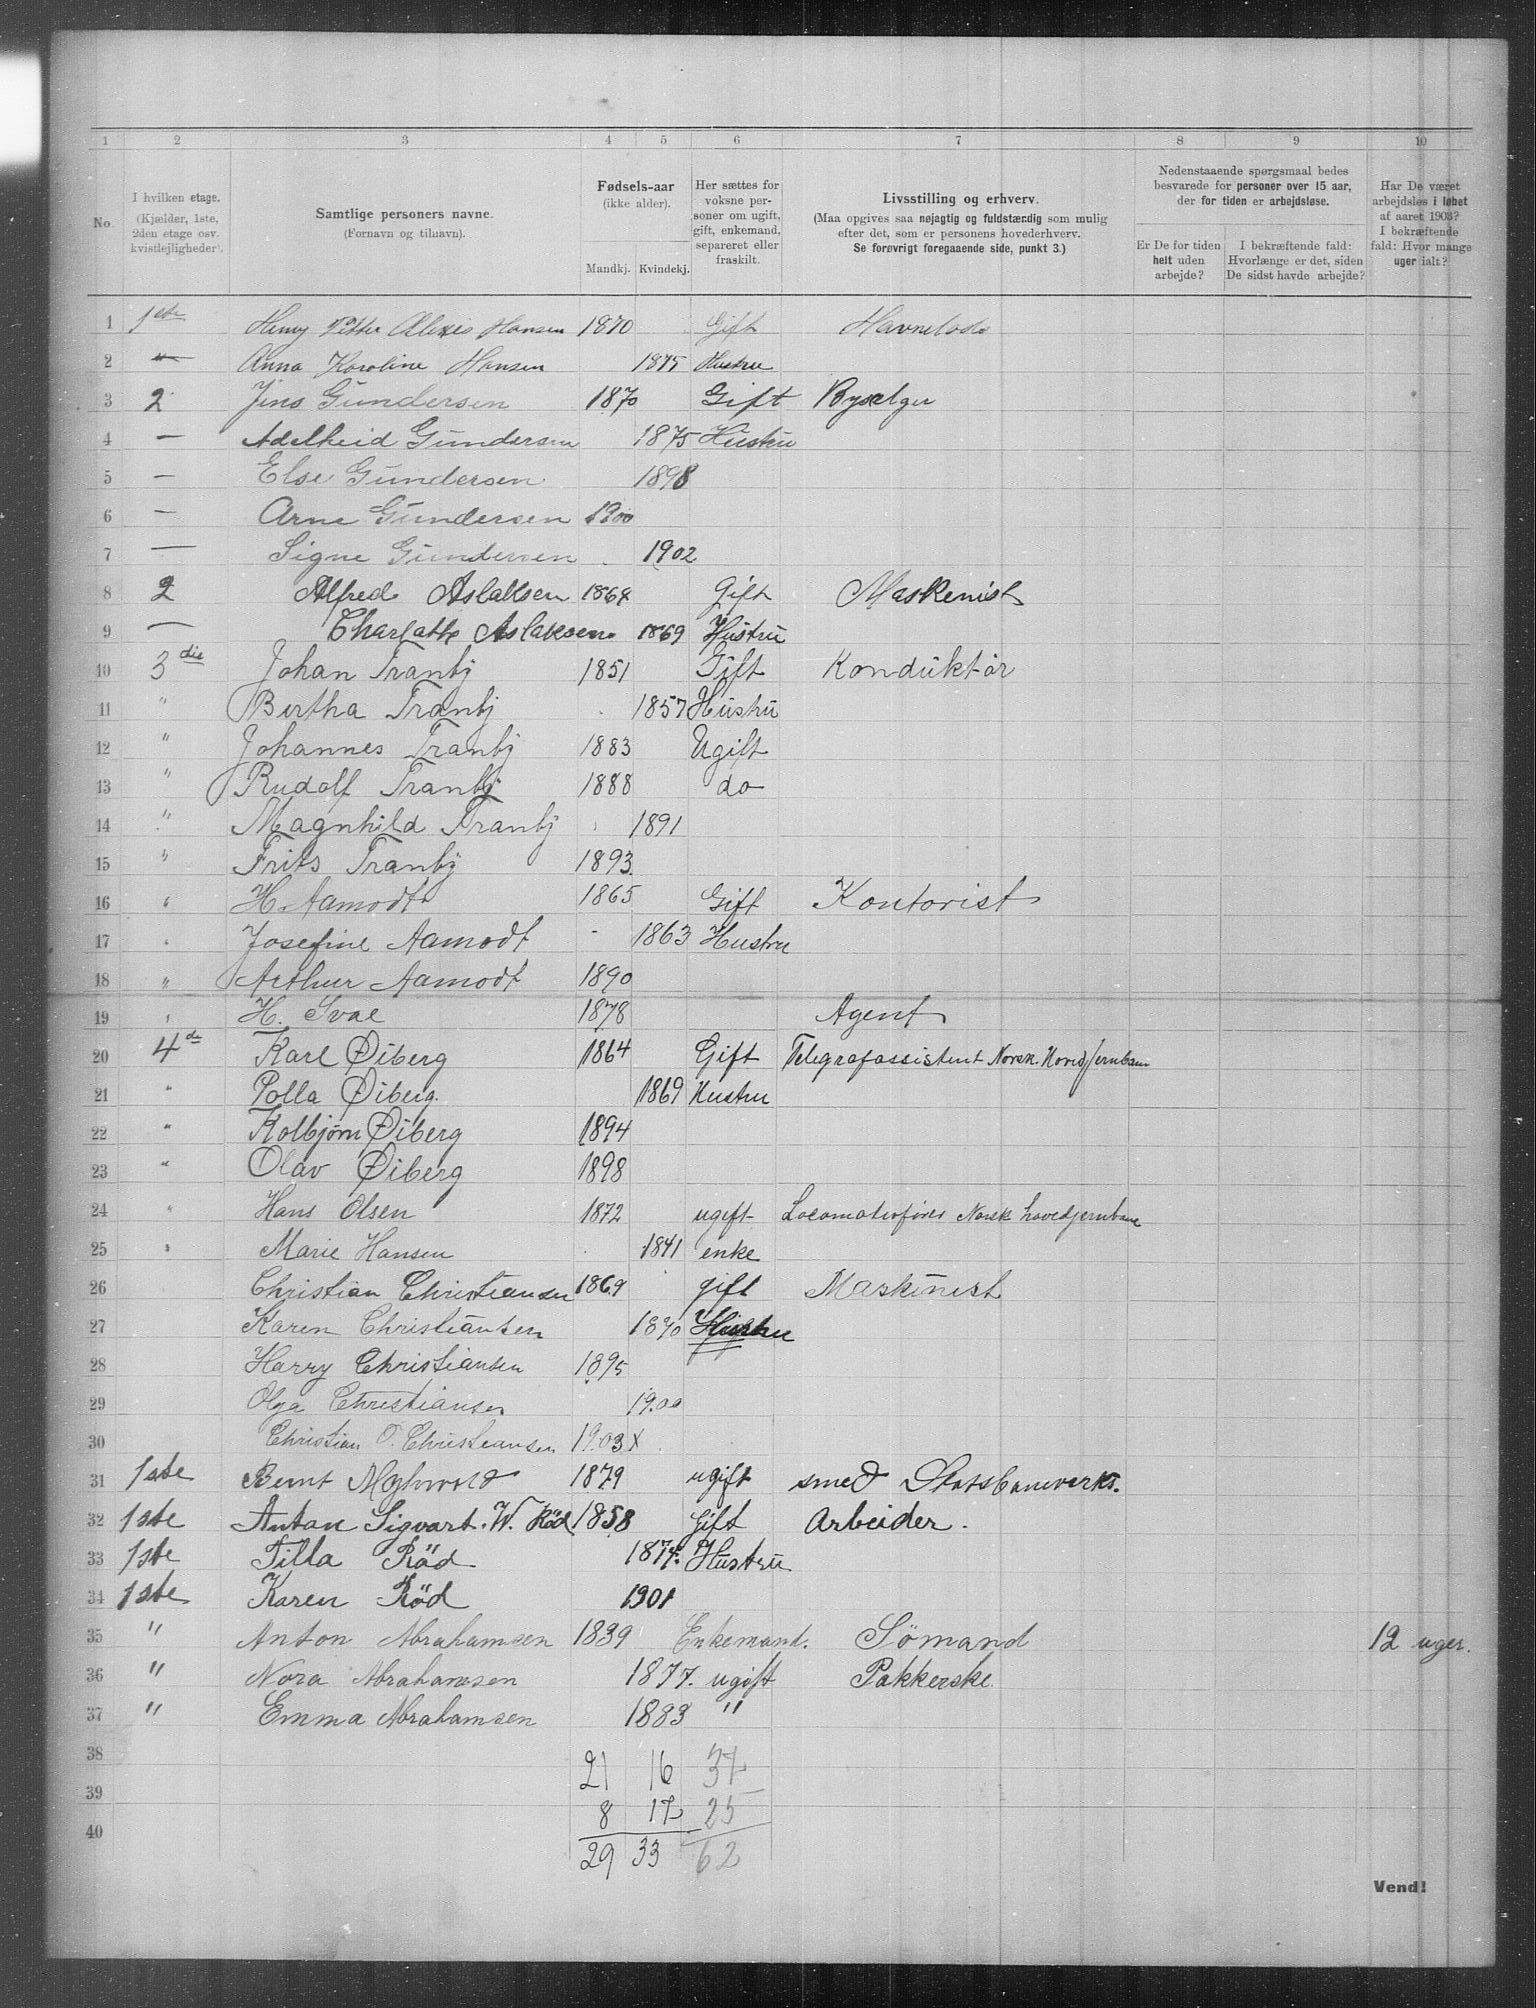 1 2 3 4 5 6 7 8 9 10
No.
I hvilken etage.
(Kjælder, 1ste,
2den etage osv.
kvistlejligheder).
Samtlige personers navne.
(Fornavn og tilnavn).
Fødsels-aar
(ikke alder).
Mandkj. Kvindekj.
Her sættes for
voksne per-
soner om ugift,
gift, enkemand,
separeret eller
fraskilt.
Livsstilling og erhverv.
(Maa opgives saa nøjagtig og fuldstændig som mulig
efter det, som er personens hovederhverv.
Se forøvrigt foregaaende side, punkt 3.)
Nedenstaaende spørgsmaal bedes
besvarede for personer over 15 aar,
der for tiden er arbejdsløse.
Er De for tiden
helt uden
arbejde?
I bekræftende fald:
Hvorlænge er det, siden
De sidst havde arbejde?
Har De været
arbejdsløs i løbet
af aaret 1903?
I bekræftende
fald: Hvor mange
uger ialt?
1 1ste Henry Petter Alexis Hansen 1870 Gift Havnelods
2 " Anna Karoline Hansen 1875 Hustru
3 2 Jens Gundersen 1870 Gift Bysælger
4 — Adelheid Gundersen 1875 Hustru
5 — Else Gundersen 1898
6 — Arne Gundersen 1900
7 — Signe Gundersen 1902
8 2 Alfred Aslaksen 1864 Gift Maskenist
9 — Charlotte Aslaksen 1869 Hustru
10 3die Johan Tranby 1851 Gift Konduktør
11 " Bertha Tranby 1857 Hustru
12 " Johannes Tranby 1883 Ugift
13 " Rudolf Tranby 1888 do
14 " Magnhild Tranby 1891
15 " Frits Tranby 1893
16 " H. Aamodt 1865 Gift Kontorist
17 " Josefine Aamodt 1863 Hustru
18 " Arthur Aamodt 1890
19 " H. Svae 1878 Agent
20 4de Karl Øiberg 1864 Gift Telegrafassistent Norsk Hovedjernbane
21 " Polla Øiberg 1869 Hustru
22 " Kolbjørn Øiberg 1894
23 " Olav Øiberg 1898
24 " Hans Olsen 1872 ugift Locomotivfører Norsk hovedjernbane
25 " Marie Hansen 1841 enke
26 Christian Christiansen 1869 gift Maskinist
27 Karen Christiansen 1870 Hustru
28 Harry Christiansen 1895
29 Olga Christiansen 1900
30 Christian O. Christiansen 1903 X
31 1ste Bernt 1879 ugift smed Statsbaneverks.
32 1ste Anton Sigvart. W. Röd 1858 Gift Arbeider.
33 1ste Tilla Röd 1874 Hustru
34 1ste Karen Röd 1901
35 " Anton Abrahamsen 1839 Enkemand. Sömand 12 uger.
36 " Nora Abrahamsen 1877. ugift Pakkerske
37 " Emma Abrahamsen 1883 "
38 21 16 37
39 8 17 25
40 29 33 62
Vend!